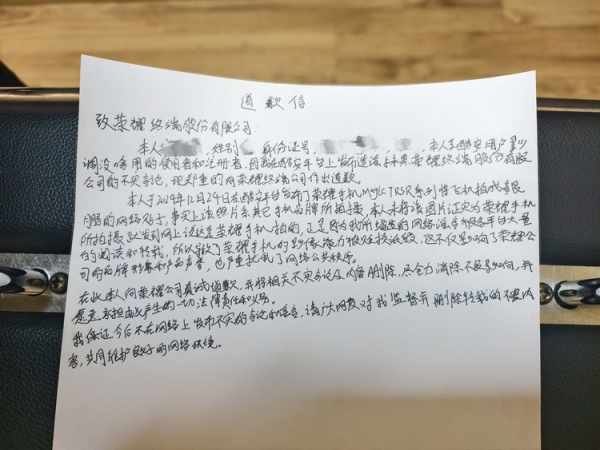 道歉信
致荣耀终端股份有限公司:
本人 ,性别 身份证号, , 本人系酷安用户
调没啥用的使用者和注册者,因我在酷安平台上发布违法 荣耀终端股份有限
公司的不实言论,现郑重的向荣耀终端公司作出道歉。
本人于2024年12月29日在酷安平台发布了荣耀手机Magic7RSR系列将飞机拍成
的网络帖子,事实上该照片系其它手机品牌所拍摄,本人未将该图片证实为荣耀手机
所拍摄就发到网上说这是荣耀手机拍的,正是因为我所编造的网络谣言被各平台大量
的阅读和转载,所以致了荣耀手机的影像能力被处处诋毁,这不仅影响了荣耀公
司的品牌形象和产品声誉,也严重扰乱了网络公共秩序。
在此本人向荣耀公司真诚道歉,并将相关不实言论及内容删除,尽全力消除不良影响,并
愿意承担由此产生的一切法律责任和义务。
我保证今后不在网络上发布不实的言论和谣言,请广大网友对我监督并删除转载的不良内
容,共同维护良好的网络环境。